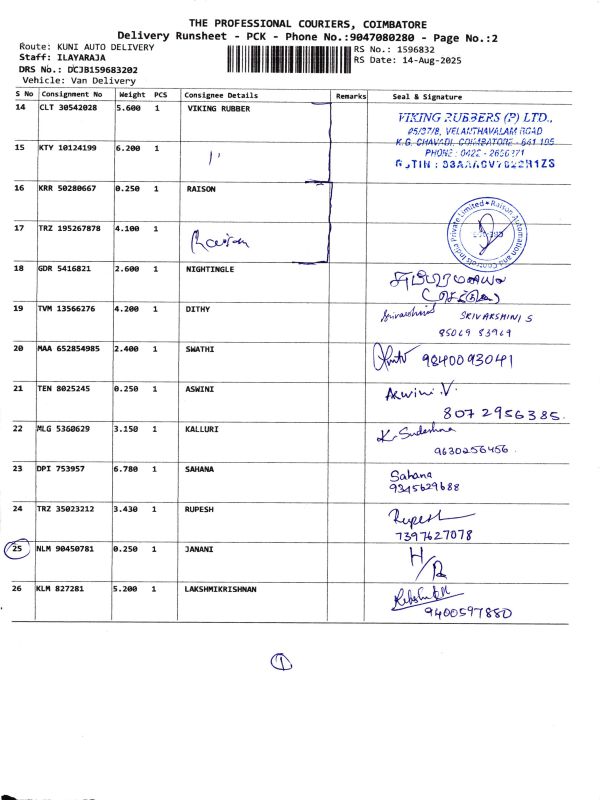 THE PROFESSIONAL COURIERS, COIMBATORE
Delivery Runsheet - PCK - Phone No.:9047080280 - Page No.:2
Route: KUNI AUTO DELIVERY RS No.: 1596832
Staff: ILAYARAJA RS Date: 14-Aug-2025
DRS No.: DCJB159683202
Vehicle: Van Delivery
S No Consignment No Weight PCS Consignee Details Remarks Seal & Signature
14 CLT 30542028 5.600 1 VIKING RUBBER
VIKING RUBBERS (P) LTD.,
05/37/8, VELANTHAVALAM ROAD
K.G. CHAVADI, COIMBATORE - 641 105
PHONE : 0422 -
15 KTY 10124199 6.200 1 "
GSTIN :
16 KRR 50280667 0.250 1 RAISON
Raison Automation and Controls India Private Limited
17 TRZ 195267878 4.100 1 Raison
18 GDR 5416821 2.600 1 NIGHTINGLE
19 TVM 13566276 4.200 1 DITHY Srivarshini SRIVARSHINI S
85069 83969
20 MAA 652854985 2.400 1 SWATHI 9840093041
21 TEN 8025245 0.250 1 ASWINI Aswini.V.
8072956385.
22 MLG 5360629 3.150 1 KALLURI K. Sudeshna
9630256456.
23 DPI 753957 6.780 1 SAHANA Sahana
9345629688
24 TRZ 35023212 3.430 1 RUPESH Rupesh
7397627078
25 NLM 90450781 0.250 1 JANANI H/R
26 KLM 827281 5.200 1 LAKSHMIKRISHNAN
9400597880
1